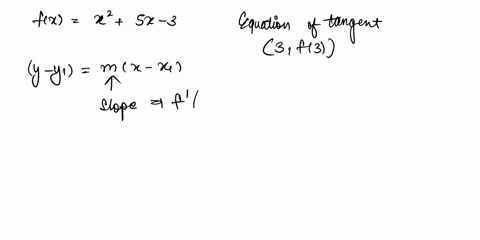 f(x) = x² + 5x - 3
Equation of tangent
(3, f(3))
(y - y₁) = m (x - x₁)
↑
slope ⇒ f'(